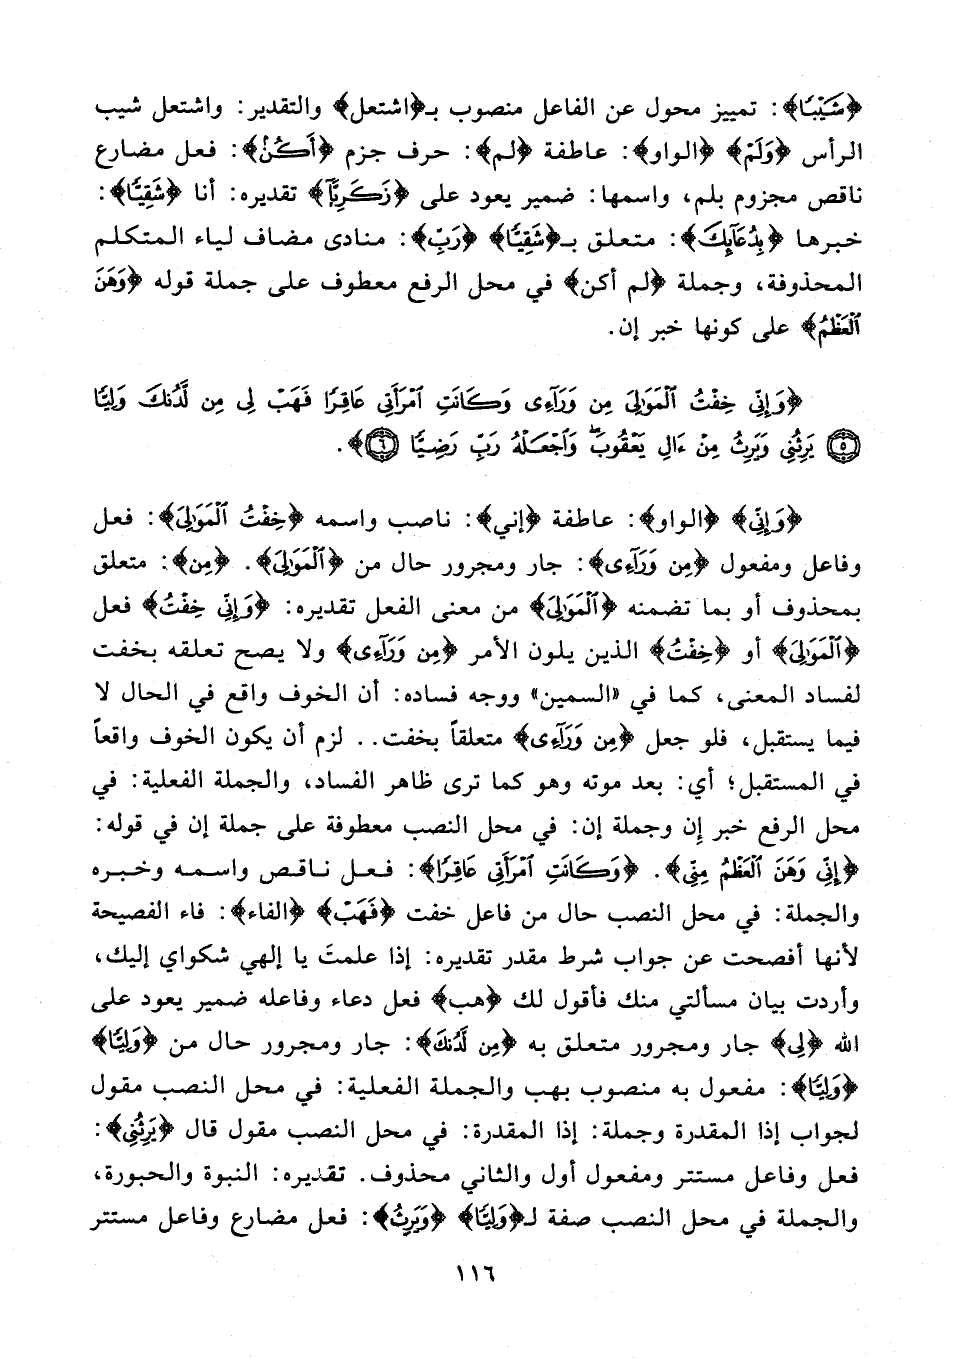 ﴿شَيْبًا﴾: تمييز محول عن الفاعل منصوب بـ﴿اشتعل﴾ والتقدير: واشتعل شيب
الرأس ﴿وَلَمْ﴾ ﴿الواو﴾: عاطفة ﴿لم﴾: حرف جزم ﴿أَكُنْ﴾: فعل مضارع
ناقص مجزوم بلم، واسمها: ضمير يعود على ﴿زَكَرِيَّآ﴾ تقديره: أنا ﴿شَقِيًّا﴾:
خبرها ﴿بِدُعَآئِكَ﴾: متعلق بـ﴿شَقِيًّا﴾ ﴿رَبِّ﴾: منادى مضاف لياء المتكلم
المحذوفة، وجملة ﴿لم أكن﴾ في محل الرفع معطوف على جملة قوله ﴿وَهَنَ
ٱلْعَظْمُ﴾ على كونها خبر إن.
﴿وَإِنِّي خِفْتُ ٱلْمَوَٰلِيَ مِن وَرَآءِى وَكَانَتِ ٱمْرَأَتِي عَاقِرًا فَهَبْ لِي مِن لَّدُنكَ وَلِيًّا
۝٥ يَرِثُنِي وَيَرِثُ مِنْ ءَالِ يَعْقُوبَ ۖ وَٱجْعَلْهُ رَبِّ رَضِيًّا ۝٦﴾.
﴿وَإِنِّي﴾ ﴿الواو﴾: عاطفة ﴿إني﴾: ناصب واسمه ﴿خِفْتُ ٱلْمَوَٰلِيَ﴾: فعل
وفاعل ومفعول ﴿مِن وَرَآءِى﴾: جار ومجرور حال من ﴿ٱلْمَوَٰلِيَ﴾. ﴿مِن﴾: متعلق
بمحذوف أو بما تضمنه ﴿ٱلْمَوَٰلِيَ﴾ من معنى الفعل تقديره: ﴿وَإِنِّي خِفْتُ﴾ فعل
﴿ٱلْمَوَٰلِيَ﴾ أو ﴿خِفْتُ﴾ الذين يلون الأمر ﴿مِن وَرَآءِى﴾ ولا يصح تعلقه بخفت
لفساد المعنى، كما في «السمين» ووجه فساده: أن الخوف واقع في الحال لا
فيما يستقبل، فلو جعل ﴿مِن وَرَآءِى﴾ متعلقاً بخفت.. لزم أن يكون الخوف واقعاً
في المستقبل؛ أي: بعد موته وهو كما ترى ظاهر الفساد، والجملة الفعلية: في
محل الرفع خبر إن وجملة إن: في محل النصب معطوفة على جملة إن في قوله:
﴿إِنِّي وَهَنَ ٱلْعَظْمُ مِنِّي﴾. ﴿وَكَانَتِ ٱمْرَأَتِي عَاقِرًا﴾: فعل ناقص واسمه وخبره
والجملة: في محل النصب حال من فاعل خفت ﴿فَهَبْ﴾ ﴿الفاء﴾: فاء الفصيحة
لأنها أفصحت عن جواب شرط مقدر تقديره: إذا علمتَ يا إلهي شكواي إليك،
وأردت بيان مسألتي منك فأقول لك ﴿هب﴾ فعل دعاء وفاعله ضمير يعود على
الله ﴿لِي﴾ جار ومجرور متعلق به ﴿مِن لَّدُنكَ﴾: جار ومجرور حال من ﴿وَلِيًّا﴾
﴿وَلِيًّا﴾: مفعول به منصوب بهب والجملة الفعلية: في محل النصب مقول
لجواب إذا المقدرة وجملة: إذا المقدرة: في محل النصب مقول قال ﴿يَرِثُنِي﴾:
فعل وفاعل مستتر ومفعول أول والثاني محذوف. تقديره: النبوة والحبورة،
والجملة في محل النصب صفة لـ﴿وَلِيًّا﴾ ﴿وَيَرِثُ﴾: فعل مضارع وفاعل مستتر
١١٦